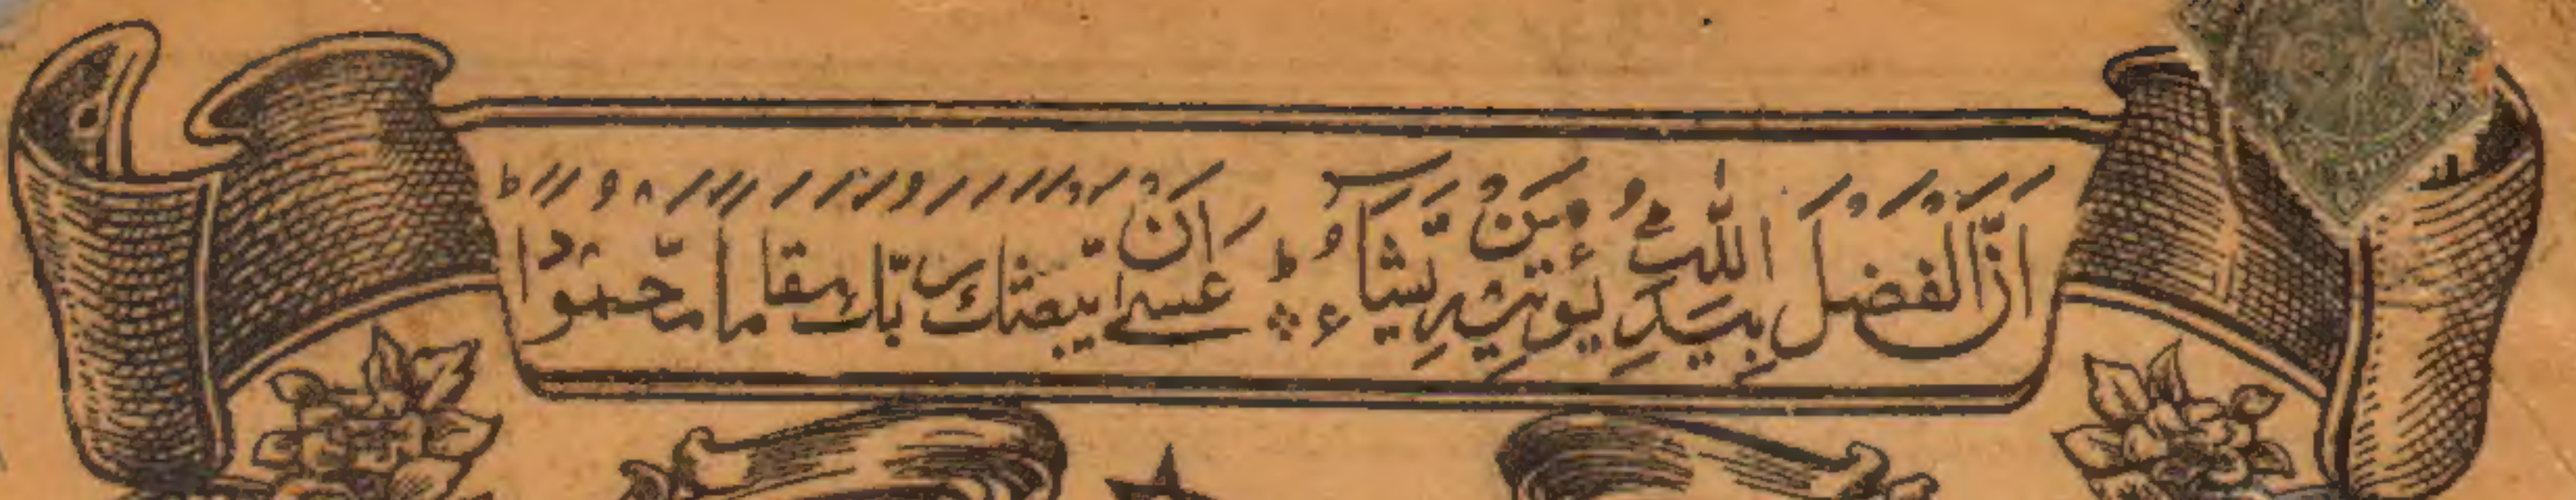 اِنَّ الْفَضْلَ بِيَدِ اللّٰهِ يُؤْتِيْهِ مَنْ يَّشَآءُ ؕ عَسٰۤى اَنْ يَّبْعَثَكَ رَبُّكَ مَقَامًا مَّحْمُوْدًا ؕ